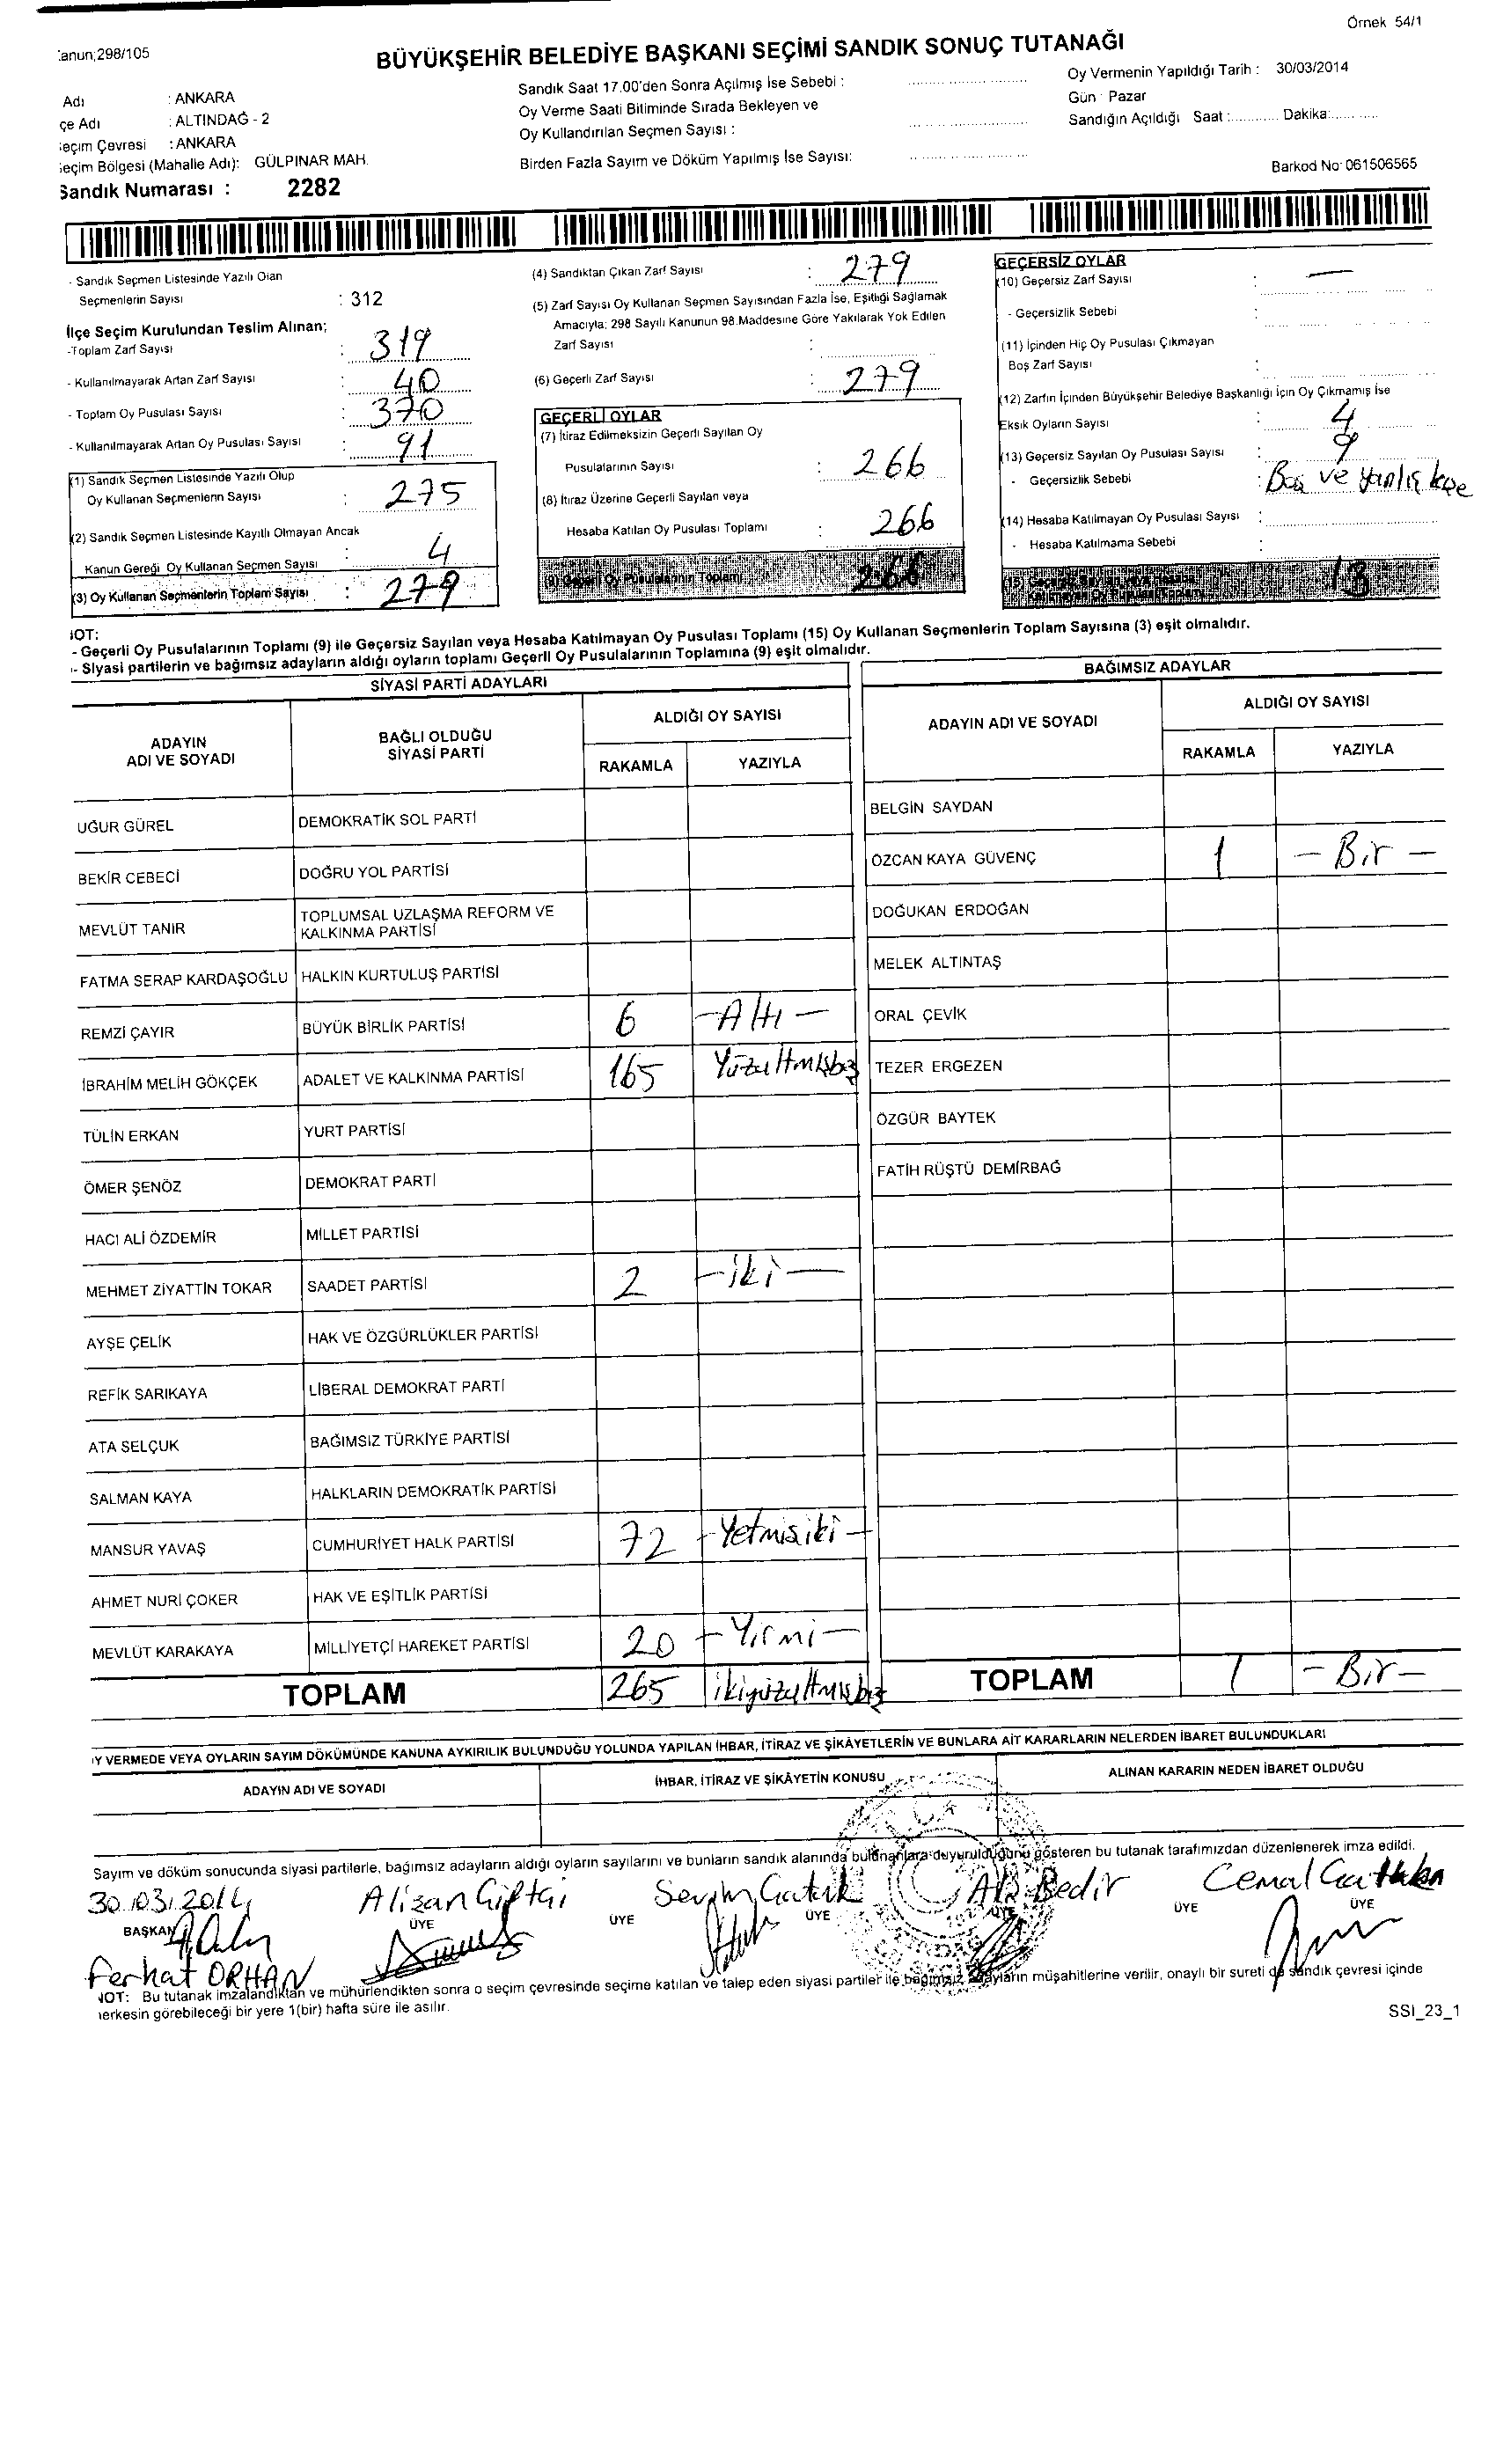 Örnek 54/1
anun;298/105
BÜYÜKŞEHİR BELEDİYE BAŞKANI SEÇİMİ SANDIK SONUÇ TUTANAĞI
Adı : ANKARA
çe Adı : ALTINDAĞ - 2
eçim Çevresi : ANKARA
eçim Bölgesi (Mahalle Adı): GÜLPINAR MAH.
Sandık Numarası : 2282
Sandık Saat 17.00'den Sonra Açılmış İse Sebebi :
Oy Verme Saati Bitiminde Sırada Bekleyen ve
Oy Kullandırılan Seçmen Sayısı :
Birden Fazla Sayım ve Döküm Yapılmış İse Sayısı:
Oy Vermenin Yapıldığı Tarih : 30/03/2014
Gün : Pazar
Sandığın Açıldığı Saat :............ Dakika:............
Barkod No: 061506565
- Sandık Seçmen Listesinde Yazılı Olan
Seçmenlerin Sayısı : 312
İlçe Seçim Kurulundan Teslim Alınan;
-Toplam Zarf Sayısı : 319
- Kullanılmayarak Artan Zarf Sayısı : 40
- Toplam Oy Pusulası Sayısı : 370
- Kullanılmayarak Artan Oy Pusulası Sayısı : 91
(1) Sandık Seçmen Listesinde Yazılı Olup
Oy Kullanan Seçmenlerin Sayısı : 275
(2) Sandık Seçmen Listesinde Kayıtlı Olmayan Ancak
Kanun Gereği Oy Kullanan Seçmen Sayısı : 4
(3) Oy Kullanan Seçmenlerin Toplam Sayısı : 279
(4) Sandıktan Çıkan Zarf Sayısı : 279
(5) Zarf Sayısı Oy Kullanan Seçmen Sayısından Fazla İse, Eşitliği Sağlamak
Amacıyla; 298 Sayılı Kanunun 98.Maddesine Göre Yakılarak Yok Edilen
Zarf Sayısı :
(6) Geçerli Zarf Sayısı : 279
GEÇERLİ OYLAR
(7) İtiraz Edilmeksizin Geçerli Sayılan Oy
Pusulalarının Sayısı : 266
(8) İtiraz Üzerine Geçerli Sayılan veya
Hesaba Katılan Oy Pusulası Toplamı : 266
(9) Geçerli Oy Pusulalarının Toplamı : 266
GEÇERSİZ OYLAR
(10) Geçersiz Zarf Sayısı : —
- Geçersizlik Sebebi :
(11) İçinden Hiç Oy Pusulası Çıkmayan
Boş Zarf Sayısı :
(12) Zarfın İçinden Büyükşehir Belediye Başkanlığı İçin Oy Çıkmamış İse
Eksik Oyların Sayısı : 4
(13) Geçersiz Sayılan Oy Pusulası Sayısı : 9
- Geçersizlik Sebebi : Boş ve yanlış kaşe
(14) Hesaba Katılmayan Oy Pusulası Sayısı :
- Hesaba Katılmama Sebebi :
(15) Geçersiz Sayılan veya Hesaba
Katılmayan Oy Pusulası Toplamı 13
NOT:
- Geçerli Oy Pusulalarının Toplamı (9) ile Geçersiz Sayılan veya Hesaba Katılmayan Oy Pusulası Toplamı (15) Oy Kullanan Seçmenlerin Toplam Sayısına (3) eşit olmalıdır.
- Siyasi partilerin ve bağımsız adayların aldığı oyların toplamı Geçerli Oy Pusulalarının Toplamına (9) eşit olmalıdır.
SİYASİ PARTİ ADAYLARI
ADAYIN ADI VE SOYADI
BAĞLI OLDUĞU SİYASİ PARTİ
ALDIĞI OY SAYISI
RAKAMLA YAZIYLA
UĞUR GÜREL DEMOKRATİK SOL PARTİ
BEKİR CEBECİ DOĞRU YOL PARTİSİ
MEVLÜT TANIR TOPLUMSAL UZLAŞMA REFORM VE KALKINMA PARTİSİ
FATMA SERAP KARDAŞOĞLU HALKIN KURTULUŞ PARTİSİ
REMZİ ÇAYIR BÜYÜK BİRLİK PARTİSİ 6 - Altı -
İBRAHİM MELİH GÖKÇEK ADALET VE KALKINMA PARTİSİ 165 Yüzaltmışbeş
TÜLİN ERKAN YURT PARTİSİ
ÖMER ŞENÖZ DEMOKRAT PARTİ
HACI ALİ ÖZDEMİR MİLLET PARTİSİ
MEHMET ZİYATTİN TOKAR SAADET PARTİSİ 2 - iki -
AYŞE ÇELİK HAK VE ÖZGÜRLÜKLER PARTİSİ
REFİK SARIKAYA LİBERAL DEMOKRAT PARTİ
ATA SELÇUK BAĞIMSIZ TÜRKİYE PARTİSİ
SALMAN KAYA HALKLARIN DEMOKRATİK PARTİSİ
MANSUR YAVAŞ CUMHURİYET HALK PARTİSİ 72 - Yetmişiki -
AHMET NURİ ÇOKER HAK VE EŞİTLİK PARTİSİ
MEVLÜT KARAKAYA MİLLİYETÇİ HAREKET PARTİSİ 20 - Yirmi -
TOPLAM 265 ikiyüzaltmışbeş
BAĞIMSIZ ADAYLAR
ADAYIN ADI VE SOYADI
ALDIĞI OY SAYISI
RAKAMLA YAZIYLA
BELGİN SAYDAN
ÖZCAN KAYA GÜVENÇ 1 - Bir -
DOĞUKAN ERDOĞAN
MELEK ALTINTAŞ
ORAL ÇEVİK
TEZER ERGEZEN
ÖZGÜR BAYTEK
FATİH RÜŞTÜ DEMİRBAĞ
TOPLAM 1 - Bir -
Y VERMEDE VEYA OYLARIN SAYIM DÖKÜMÜNDE KANUNA AYKIRILIK BULUNDUĞU YOLUNDA YAPILAN İHBAR, İTİRAZ VE ŞİKÂYETLERİN VE BUNLARA AİT KARARLARIN NELERDEN İBARET BULUNDUKLARI
ADAYIN ADI VE SOYADI İHBAR, İTİRAZ VE ŞİKÂYETİN KONUSU ALINAN KARARIN NEDEN İBARET OLDUĞU
Sayım ve döküm sonucunda siyasi partilerle, bağımsız adayların aldığı oyların sayılarını ve bunların sandık alanında bulunanlara duyurulduğunu gösteren bu tutanak tarafımızdan düzenlenerek imza edildi.
30.03.2014 Alişan Çiftçi Bedir Cemal
BAŞKAN ÜYE ÜYE ÜYE ÜYE ÜYE
Ferhat ORHAN
NOT: Bu tutanak imzalandıktan ve mühürlendikten sonra o seçim çevresinde seçime katılan ve talep eden siyasi partiler ile bağımsız adayların müşahitlerine verilir, onaylı bir sureti de sandık çevresi içinde
herkesin görebileceği bir yere 1(bir) hafta süre ile asılır.
SSI_23_1